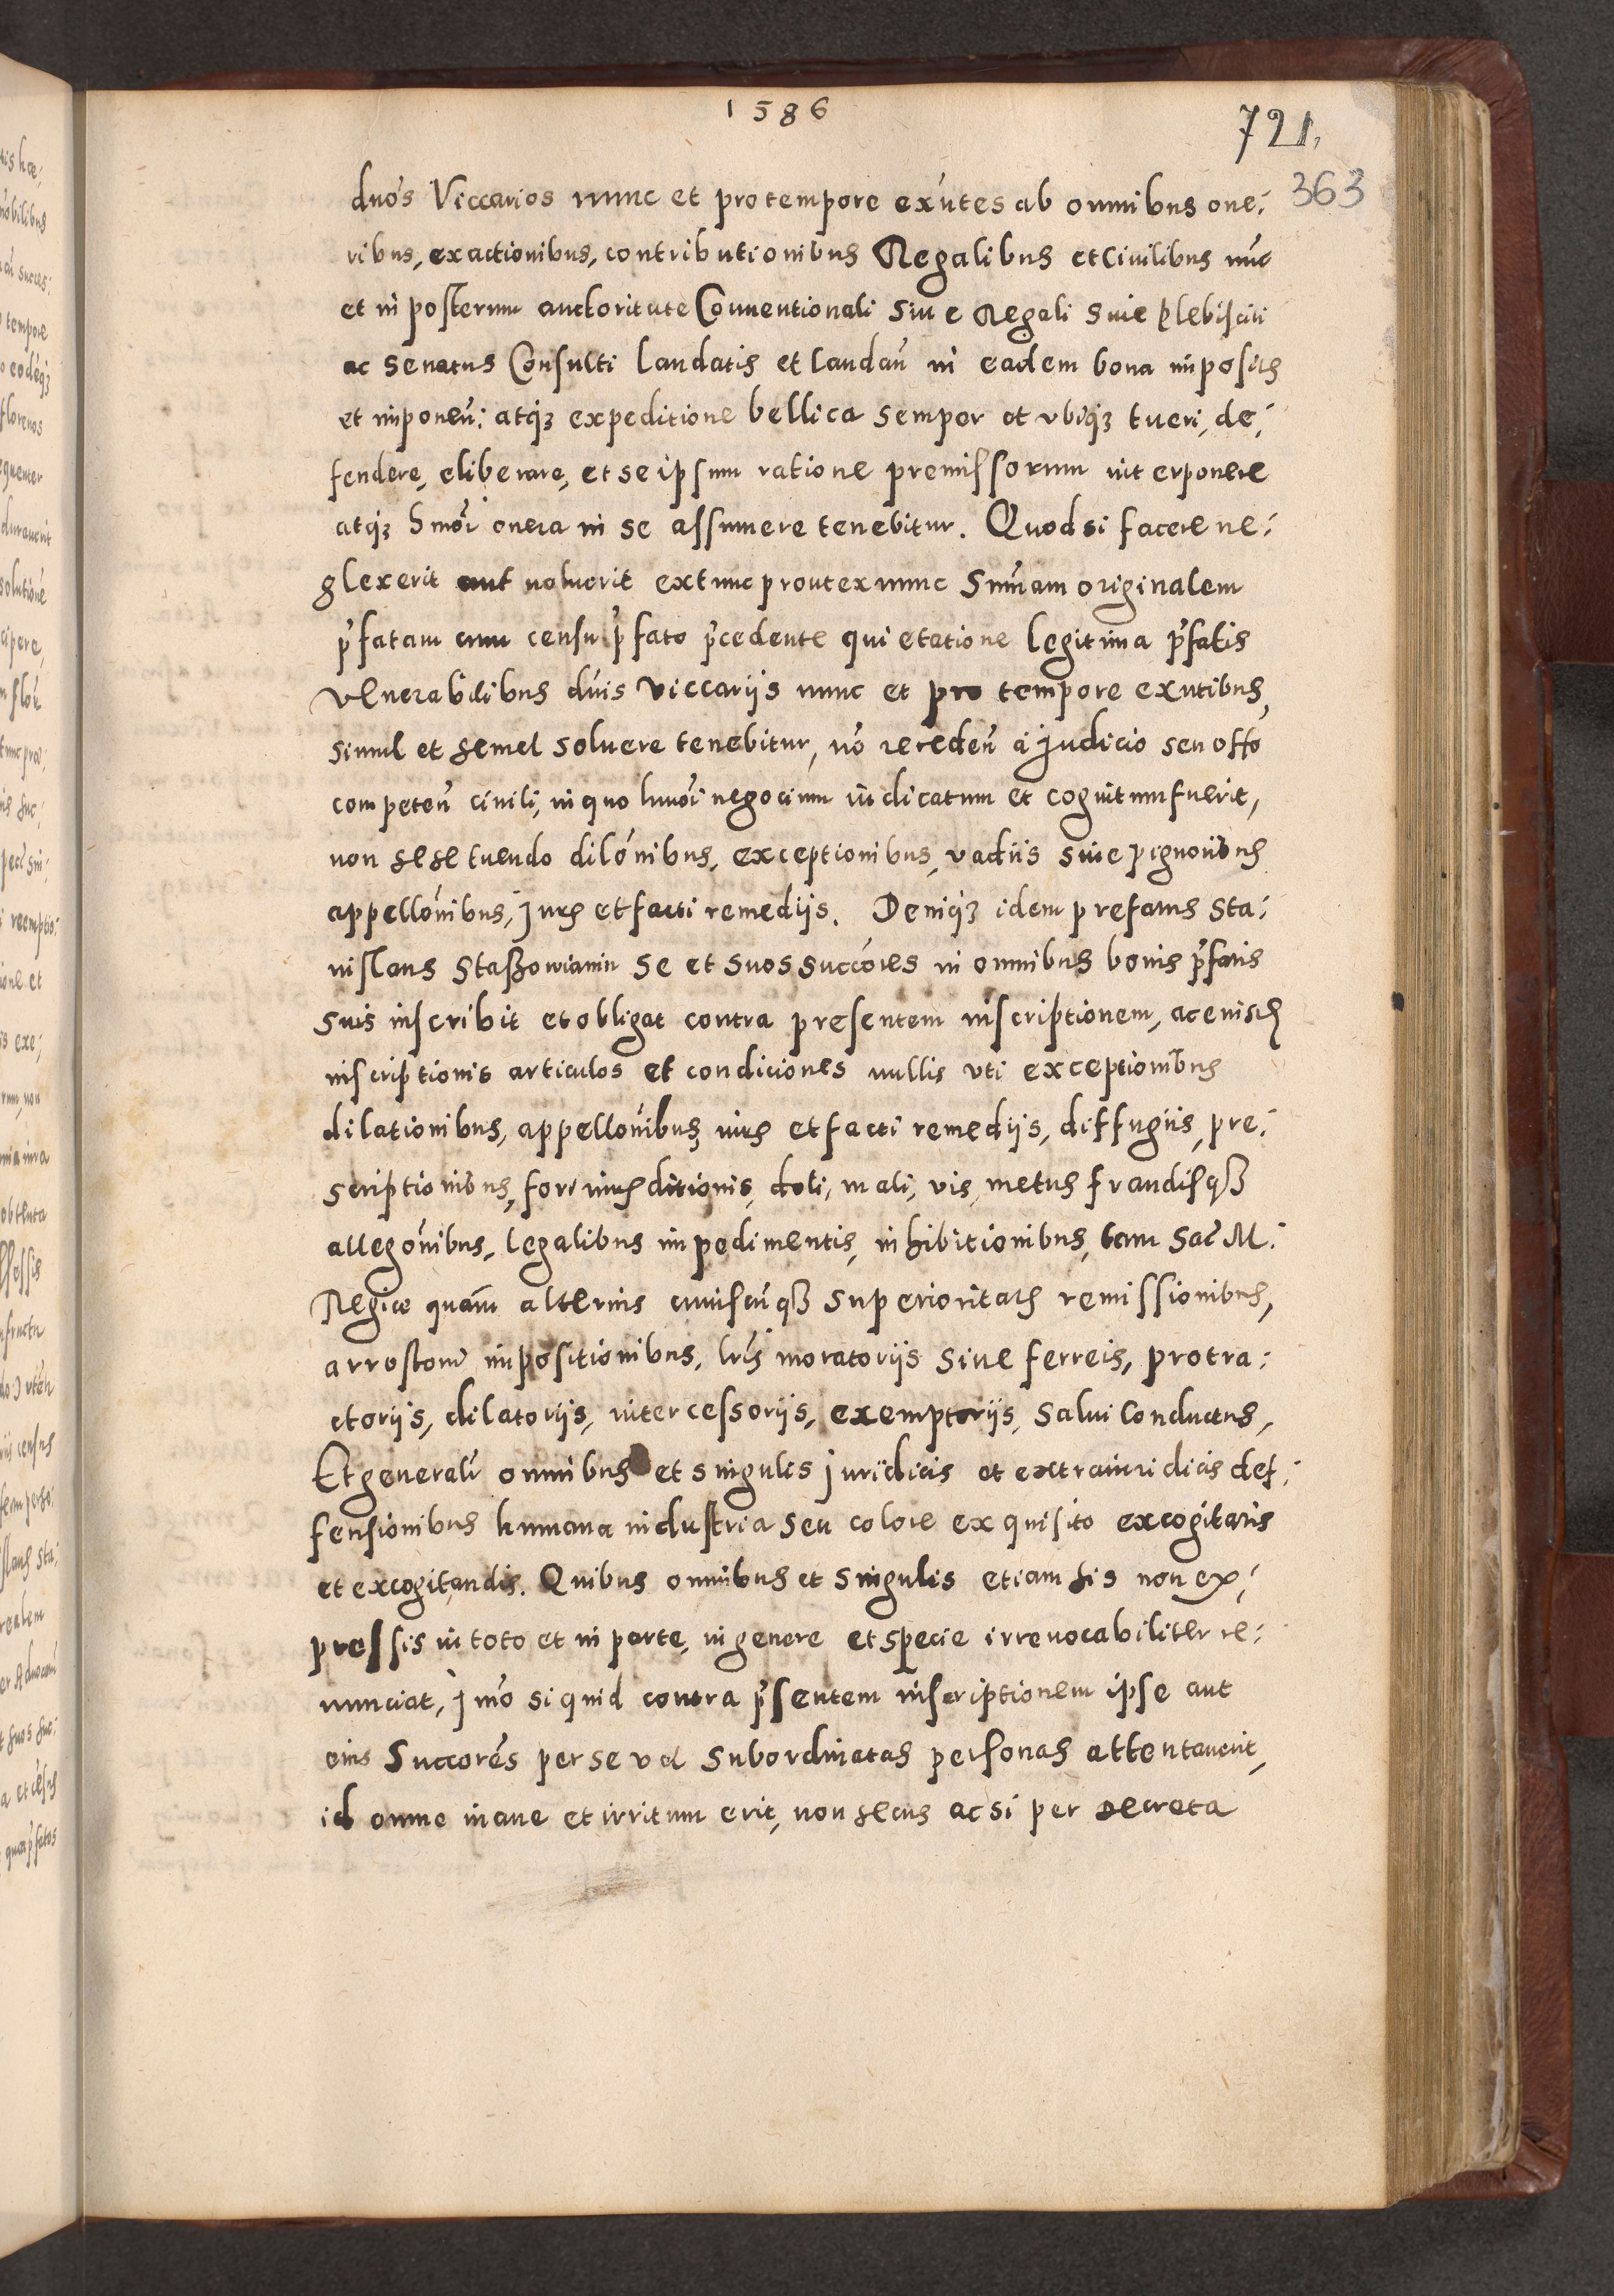 1586
721.
363
duos Viccarios nunc et pro tempore exūtes ab omnibus one:
ribus, exactionibus, contributionibus Regalibus et Ciuilibus nūc
et in posterum auctoritate Conuentionali Siue Regali Siue plebisciti
ac Senatus Consulti laudatis et laudan̄ in eadem bona impositis
et imponen̄: atq₃ expeditione bellica semper et vbiq₃ tueri, de:
fendere, eliberare, et se ipsum ratione premissorum interponere
atq₃ hmōi onera in se assumere tenebitur. Quod si facere ne:
glexerit aut noluerit extunc prout ex nunc Sum̄am originalem
p̄fatam cum censu p̄fato p̄cedente quietatione legitima p̄fatis
Venerabilibus dn̄is Viccarijs nunc et pro tempore exn̄tibus,
simul et semel soluere tenebitur, nō receden̄ à Judicio seu offo
competen̄ ciuili, in quo huiōi negocium iudicatum et cognitum fuerit,
non sese tuendo dilōnibus, exceptionibus, vadiis siue pignoribus
appellōnibus, Juris et facti remedijs. Deniq₃ idem prefatus Sta:
nislaus Staszowianin se et suos succōres in omnibus bonis p̄fatis
suis inscribit et obligat contra presentem inscriptionem, ac eiusdē
inscriptionis articulos et condiciones nullis vti exceptionibus
dilationibus, appellōnibus, iuris et facti remedijs, diffugiis, pre:
scriptionibus, fori iurisditionis, doli, mali, vis, metus fraudisq₃
allegōnibus, legalibus impedimentis, inhibitionibus, tam Sac̄ M.
Regiae quàm alterius cuiuscūq₃ Superioritatis remissionibus,
arrestorū impositionibus, lr̄is moratorijs siue ferreis, protra:
ctorijs, dilatorijs, intercessorijs, exemptorijs, salui Conductus,
Et generalr̄ omnibus et singulis juridicis et extraiuridicis def:
fensionibus humana industria seu colore exquisito excogitatis
et excogitandis. Quibus omnibus et singulis etiam his non ex:
pressis in toto et in parte, in genere et specie irreuocabiliter re:
nunciat, Jmō si quid contra p̄sentem inscriptionem ipse aut
eius Succorēs per se vel subordinatas personas attentauerit,
id omne inane et irritum erit, non secus ac si per decreta